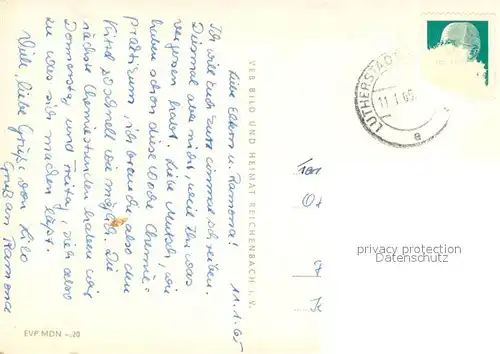 11.1.65
Liebe Eltern u. Ramona!
Ich will Euch kurz einmal schreiben.
Diesmal aber nicht, weil Ihr was
vergessen habt. Liebe Mutsch, wir
haben schon diese Woche Chemie-
praktikum, ich brauche also den
Kittel so schnell wie möglich. Die
nächsten Chemiestunden haben wir
Donnerstag und Freitag, sieh also
zu was sich machen läßt.
Viele, liebe Grüße von Lilo
Gruß an Ramona
VEB BILD UND HEIMAT REICHENBACH i. V.
EVP MDN -,20
LUTHERSTADT
11.1.65
privacy protection
Datenschutz